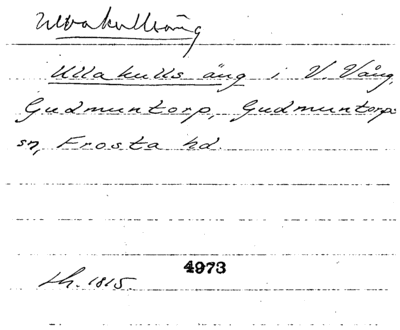 Ullakullsäng
Ullakulls äng i V. Vång,
Gudmuntorp, Gudmuntorps
sn, Frosta hd.
4973
Lh. 1815.